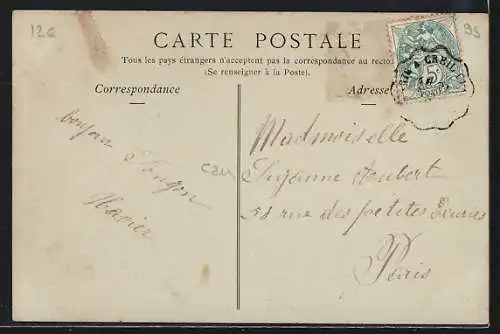 12€
95
CARTE POSTALE
Tous les pays étrangers n'acceptent pas la correspondance au recto
(Se renseigner à la Poste).
Correspondance
Adresse
CREIL
bonjour
Madmoiselle
Suzanne Aubert
58 rue des petites Écuries
Paris